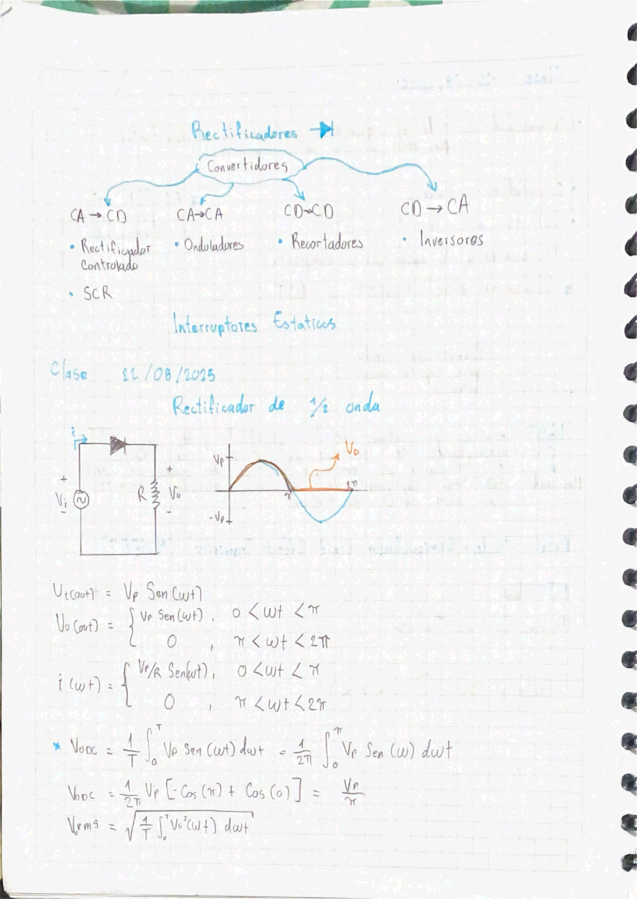 Rectificadores
Convertidores
CA → CD CA→CA CD→CD CD → CA
• Rectificador Controlado • Onduladores • Recortadores • Inversores
• SCR
Interruptores Estaticos
Clase 22/08/2025
Rectificador de 1/2 onda
i
+ Vi -
R
+ Vo -
Vp
-Vp
π
2π
Vo
Vi(ωt) = Vp Sen(ωt)
Vo(ωt) = { Vp Sen(ωt), 0 < ωt < π
0 , π < ωt < 2π
i(ωt) = { Vp/R Sen(ωt), 0 < ωt < π
0 , π < ωt < 2π
* VoDC = 1/T ∫₀ᵀ Vp Sen (ωt) dωt = 1/2π ∫₀^π Vp Sen (ω) dωt
VoDC = 1/2π Vp [-Cos(π) + Cos(0)] = Vp/π
Vorms = √(1/T ∫₀ᵀ Vo²(ωt) dωt)